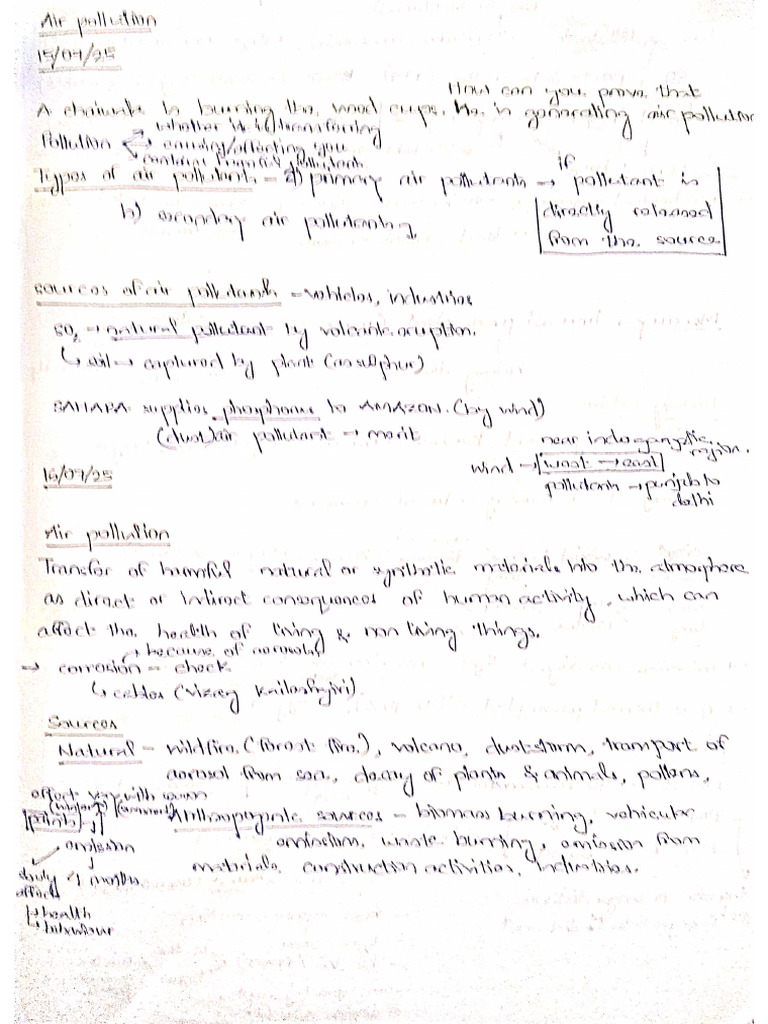 Air pollution
15/09/25
How can you prove that
A chaiwala is burning the used cups. He is generating air pollution
Pollution → whether is it transferring
→ causing/affecting you
→ contains harmful pollutants
Types of air pollutants - a) primary air pollutants → if pollutant is
directly released
from the source
b) secondary air pollutants
Sources of air pollutants - vehicles, industries
SO2 → natural pollutant by volcanic eruption.
↳ soil → captured by plant (as sulphur)
SAHARA supplies phosphorus to AMAZON. (by wind)
(dust) air pollutant → merit
near indo gangetic region.
wind → west → east
pollutants → punjab to
delhi
16/09/25
Air pollution
Transfer of harmful natural or synthetic materials into the atmosphere
as direct or indirect consequences of human activity, which can
affect the health of living & non living things.
↗ because of aerosols
→ corrosion - check
↳ cables (Vizag Kailashgiri).
Sources
Natural - wildfire (forest fire), volcano, dust storm, transport of
aerosol from sea, decay of plants & animals, pollens,
effect vary with season
(winter) (summer)
Anthropogenic sources - biomass burning, vehicular
emission, waste burning, emission from
materials, construction activities, industries.
emission
study 4 months
effects
→ health
→ behaviour